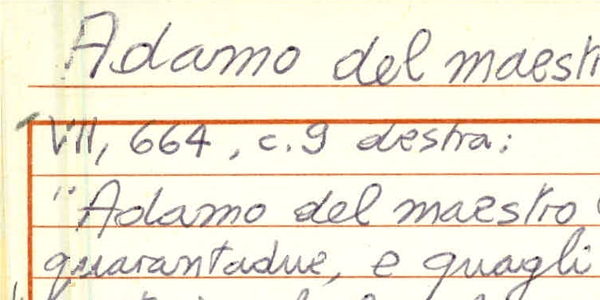 Adamo del maest
VII, 664, c. 9 destra:
"Adamo del maestro
quarantadue, e quagli